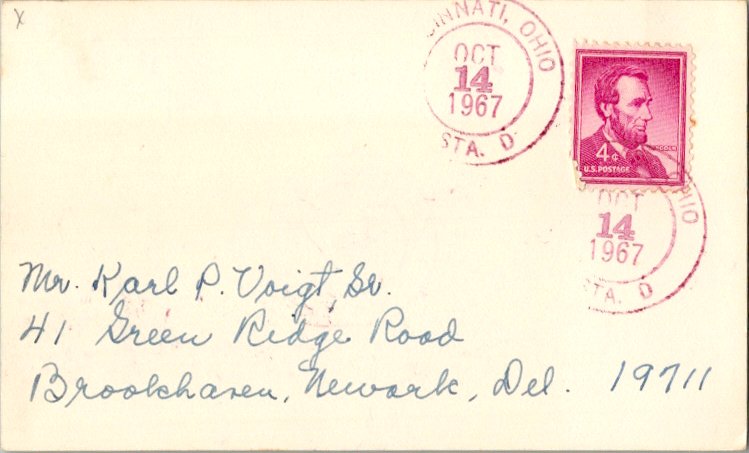 X
CINNATI, OHIO
OCT
14
1967
STA. D
4¢
LINCOLN
U.S. POSTAGE
HIO
OCT
14
1967
STA. D
Mr. Karl P. Voigt Sr.
41 Green Ridge Road
Brookhaven, Newark, Del. 19711